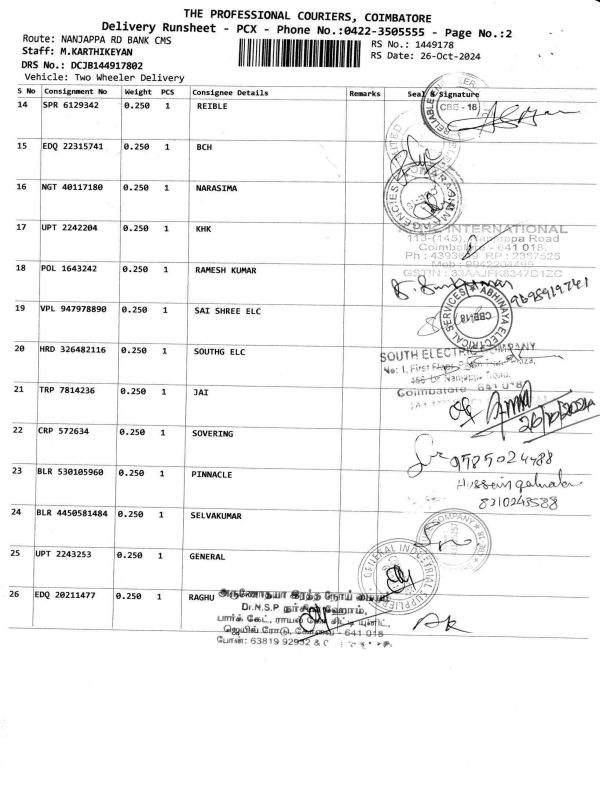 THE PROFESSIONAL COURIERS, COIMBATORE
Delivery Runsheet - PCX - Phone No.:0422-3505555 - Page No.:2
Route: NANJAPPA RD BANK CMS
RS No.: 1449178
Staff: M.KARTHIKEYAN
RS Date: 26-Oct-2024
DRS No.: DCJB144917802
Vehicle: Two Wheeler Delivery
S No Consignment No Weight PCS Consignee Details Remarks Seal & Signature
14 SPR 6129342 0.250 1 REIBLE
CBE - 18
15 EDQ 22315741 0.250 1 BCH
16 NGT 40117180 0.250 1 NARASIMA
17 UPT 2242204 0.250 1 KHK
INTERNATIONAL
113-(145), Nanjappa Road
Coimbatore - 641 018.
18 POL 1643242 0.250 1 RAMESH KUMAR
GSTIN : 33AAJFK8347D1ZC
19 VPL 947978890 0.250 1 SAI SHREE ELC
ABHINAYA ELECTRICAL SERVICES
CBE-18
20 HRD 326482116 0.250 1 SOUTHG ELC
SOUTH ELECTRIC COMPANY
No: 1, First Floor,
Coimbatore - 641 018
21 TRP 7814236 0.250 1 JAI
26/10/2024
22 CRP 572634 0.250 1 SOVERING
9585024488
23 BLR 530105960 0.250 1 PINNACLE
8310243588
24 BLR 4450581484 0.250 1 SELVAKUMAR
25 UPT 2243253 0.250 1 GENERAL
GENERAL INDUSTRIAL SUPPLIERS
26 EDQ 20211477 0.250 1 RAGHU
அருணோதயா இரத்த நோய் மையம்
Dr.N.S.P. நர்சிங் ஹோம்,
பார்க் கேட், ராயல் சிட்டி யுனிட்,
ஜெயில் ரோடு, கோவை - 641 018
போன்: 63819 92932 &